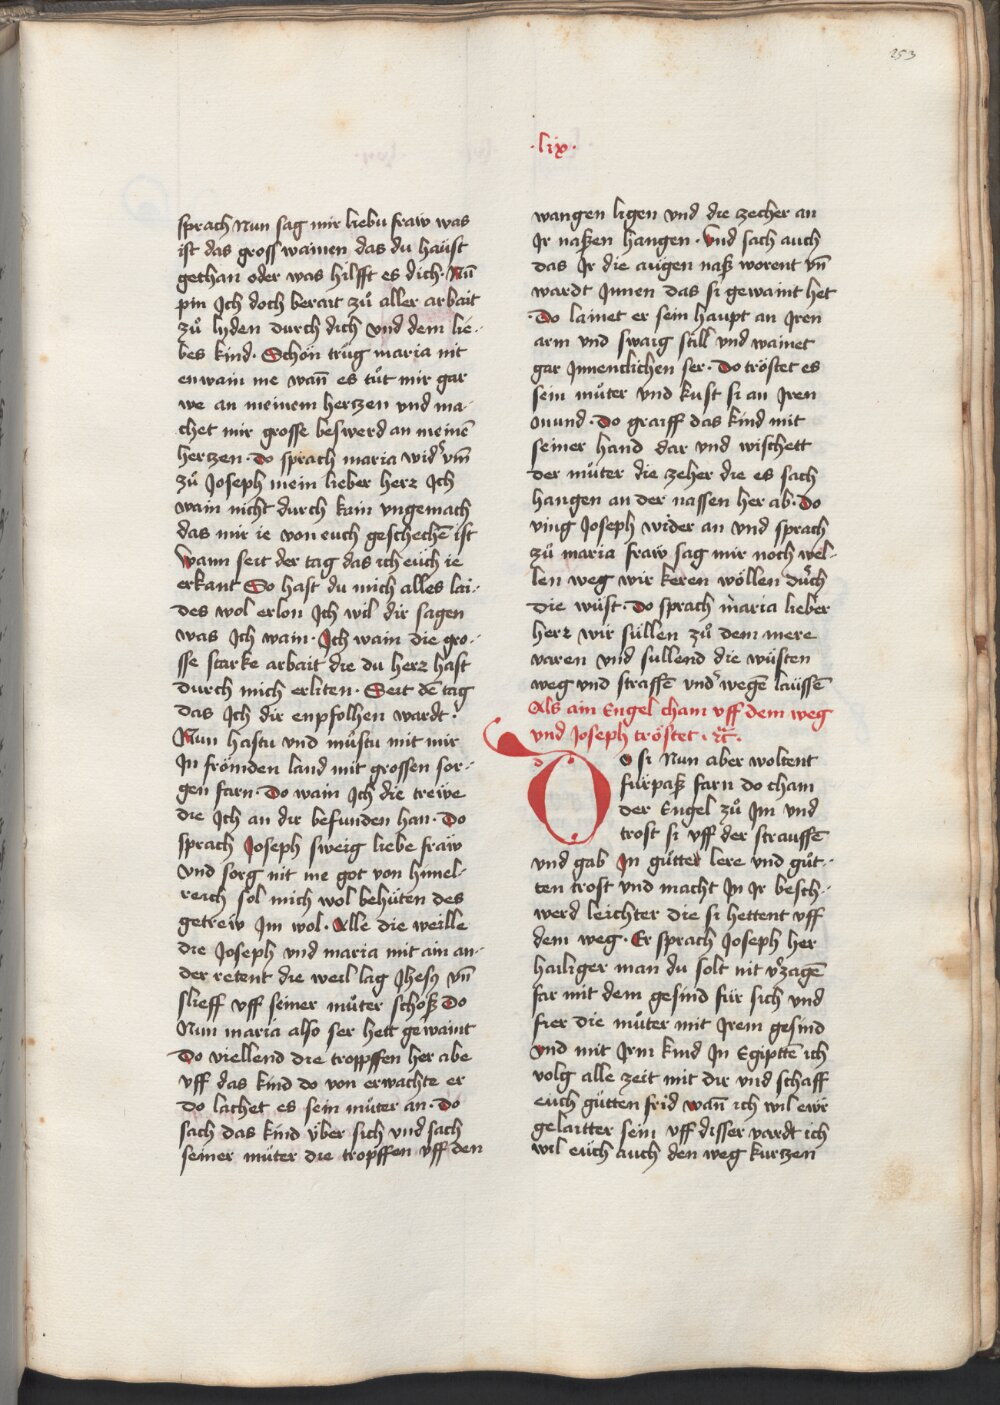 253
·lix·
sprach Nun sag mir liebu fraw was
ist das gross wainen das du haüst
gethan oder was hilfft es dich· Nū
pin Ich doch berait zů aller arbait
zů lyden durch dich vnd dem lie-
bes kind· Schön trüg maria nit
enwain me wañ es tůt mir gar
we an meinem hertzen vnd ma-
chet mir grosse beswerd an meinē
hertzen· Do sprach maria wid' vm̄
zů Joseph mein lieber herz Ich
wain nicht durch kain vngemach
das mir ie von euch geschechē ist
Wann seit der tag das ich eüch ie
erkant So hast du mich alles lai-
des wol erlon Ich wil dir sagen
was Ich wain· Ich wain die gro-
sse starke arbait die du herz hast
durch mich erliten· Seit dē tag
das Ich dir enpfolhen wardt·
Nun hastu vnd můstu mit mir
In frömden land mit grossen sor-
gen farn· Do wain Ich die trewe
die Ich an dir befunden han· Do
sprach Joseph sweig liebe fraw
vnd sorg nit me got von himel-
reich sol mich wol behüten des
getrew Im wol· Alle die weille
die Joseph vnd maria mit ain an-
der retent die weil lag Jhesꝰ vn̄
slieff vff seiner můter schoß Do
Nun maria also ser hett gewaint
Do viellend die tropffen her abe
vff das kind do von erwachte er
do lachet es sein můter an· Do
sach das kind über sich vnd sach
seiner müter die tropffen vff den
wangen ligen vnd die zecher an
Ir naßen hangen· Vnd sach auch
das Ir die augen naß worent vn̄
wardt Innen das si gewaint het
Do lainet er sein haupt an Iren
arm vnd swaig still vnd wainet
gar Innenclichen ser· Do tröstet es
sein můter vnd kust si an Iren
mund· Do graiff das kind mit
seiner hand dar vnd wischett
der můter die zeher die es sach
hangen an der nassen her ab· Do
ving Joseph wider an vnd sprach
zů maria fraw sag mir noch wel-
len weg wir keren wöllen durch
die wüst· Do sprach maria lieber
herz wir süllen zů dem mere
varen vnd sullend die wüsten
weg vnd straffē vnd' wegē laüssē
Als ain Engel cham vff dem weg
vnd Joseph tröstet· ⁊c̄·
Do si Nun aber woltent
fürpaß farn do cham
der Engel zů Im vnd
trost si vff der straussē
vnd gab In gůtter lere vnd gůt-
ten trost vnd macht In Ir besch-
werd leichter die si hettent vff
dem weg· Er sprach Joseph her
hailiger man du solt nit v'zagē
far mit dem gesind für sich vnd
fier die můter mit Irem gesind
vnd mit Irm kind In Egiptē ich
volg alle zeit mit dir vnd schaff
euch gütten frid wañ ich wil ewr
gelaitter sein vff disser vardt ich
wil eüch auch den weg kurtzen